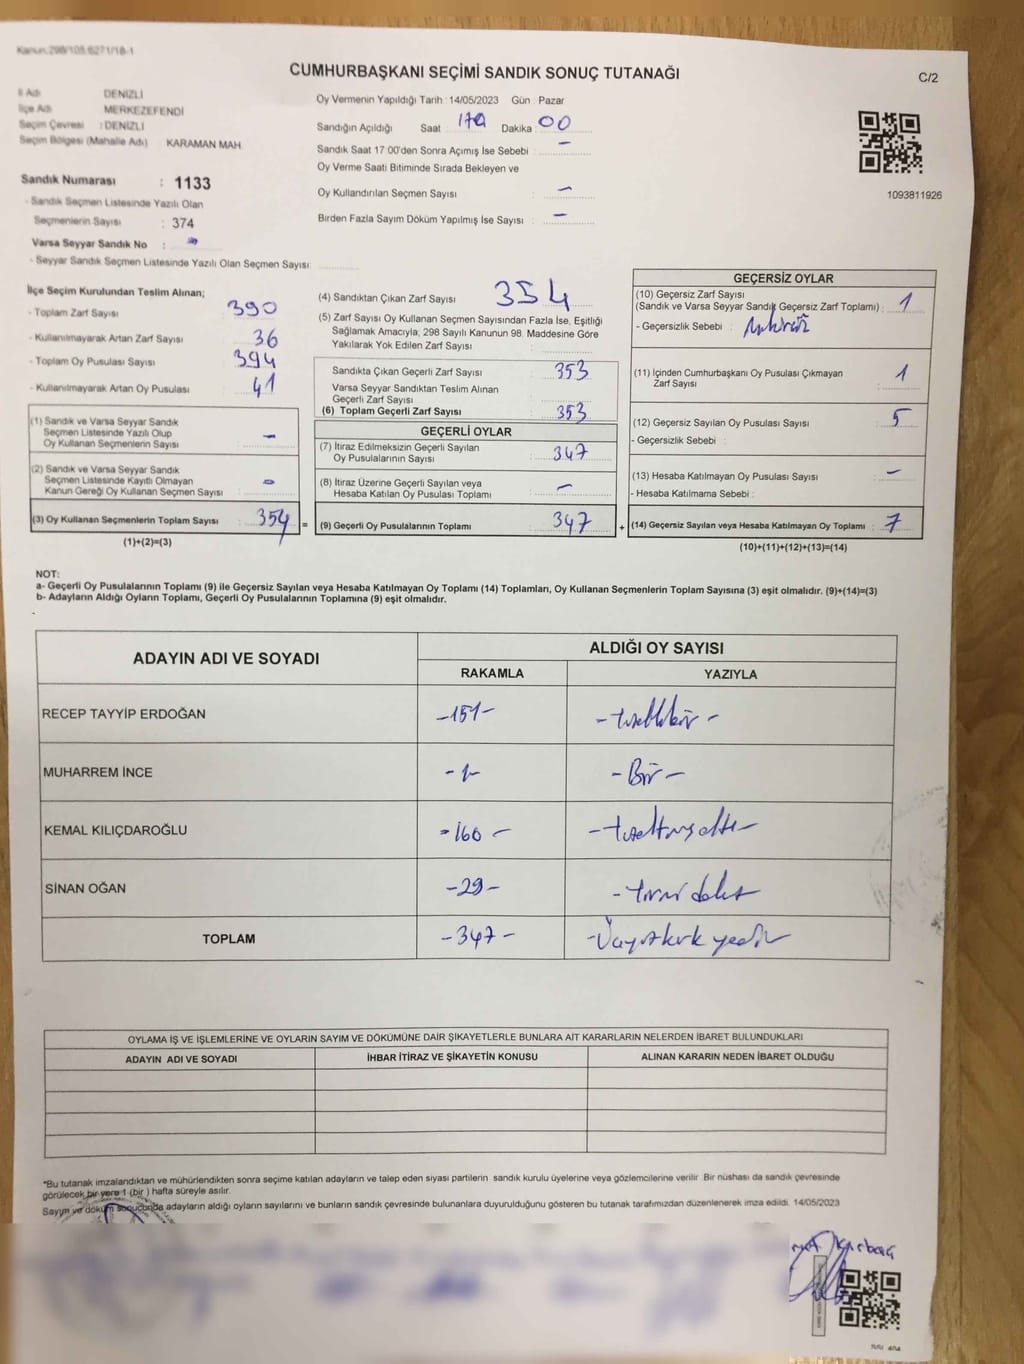 Kanun.298/105.6271/18-1
CUMHURBAŞKANI SEÇİMİ SANDIK SONUÇ TUTANAĞI
C/2
İl Adı DENİZLİ
İlçe Adı MERKEZEFENDİ
Seçim Çevresi : DENİZLİ
Seçim Bölgesi (Mahalle Adı) KARAMAN MAH.
Sandık Numarası : 1133
- Sandık Seçmen Listesinde Yazılı Olan
Seçmenlerin Sayısı : 374
Varsa Seyyar Sandık No : -
- Seyyar Sandık Seçmen Listesinde Yazılı Olan Seçmen Sayısı:
Oy Vermenin Yapıldığı Tarih : 14/05/2023 Gün : Pazar
Sandığın Açıldığı Saat Dakika : 00
Sandık Saat 17:00'den Sonra Açımış İse Sebebi : -
Oy Verme Saati Bitiminde Sırada Bekleyen ve
Oy Kullandırılan Seçmen Sayısı : -
Birden Fazla Sayım Döküm Yapılmış İse Sayısı : -
1093811926
İlçe Seçim Kurulundan Teslim Alınan;
- Toplam Zarf Sayısı : 390
- Kullanılmayarak Artan Zarf Sayısı : 36
- Toplam Oy Pusulası Sayısı : 394
- Kullanılmayarak Artan Oy Pusulası : 41
(1) Sandık ve Varsa Seyyar Sandık
Seçmen Listesinde Yazılı Olup
Oy Kullanan Seçmenlerin Sayısı : -
(2) Sandık ve Varsa Seyyar Sandık
Seçmen Listesinde Kayıtlı Olmayan
Kanun Gereği Oy Kullanan Seçmen Sayısı : -
(3) Oy Kullanan Seçmenlerin Toplam Sayısı : 354 =
(1)+(2)=(3)
(4) Sandıktan Çıkan Zarf Sayısı : 354
(5) Zarf Sayısı Oy Kullanan Seçmen Sayısından Fazla İse, Eşitliği
Sağlamak Amacıyla, 298 Sayılı Kanunun 98. Maddesine Göre
Yakılarak Yok Edilen Zarf Sayısı :
Sandıkta Çıkan Geçerli Zarf Sayısı : 353
Varsa Seyyar Sandıktan Teslim Alınan
Geçerli Zarf Sayısı :
(6) Toplam Geçerli Zarf Sayısı : 353
GEÇERLİ OYLAR
(7) İtiraz Edilmeksizin Geçerli Sayılan
Oy Pusulalarının Sayısı : 347
(8) İtiraz Üzerine Geçerli Sayılan veya
Hesaba Katılan Oy Pusulası Toplamı : -
(9) Geçerli Oy Pusulalarının Toplamı : 347 +
GEÇERSİZ OYLAR
(10) Geçersiz Zarf Sayısı
(Sandık ve Varsa Seyyar Sandık Geçersiz Zarf Toplamı) : 1
- Geçersizlik Sebebi :
(11) İçinden Cumhurbaşkanı Oy Pusulası Çıkmayan
Zarf Sayısı : 1
(12) Geçersiz Sayılan Oy Pusulası Sayısı : 5
- Geçersizlik Sebebi :
(13) Hesaba Katılmayan Oy Pusulası Sayısı : -
- Hesaba Katılmama Sebebi :
(14) Geçersiz Sayılan veya Hesaba Katılmayan Oy Toplamı : 7
(10)+(11)+(12)+(13)=(14)
NOT:
a- Geçerli Oy Pusulalarının Toplamı (9) ile Geçersiz Sayılan veya Hesaba Katılmayan Oy Toplamı (14) Toplamları, Oy Kullanan Seçmenlerin Toplam Sayısına (3) eşit olmalıdır. (9)+(14)=(3)
b- Adayların Aldığı Oyların Toplamı, Geçerli Oy Pusulalarının Toplamına (9) eşit olmalıdır.
ADAYIN ADI VE SOYADI
ALDIĞI OY SAYISI
RAKAMLA YAZIYLA
RECEP TAYYİP ERDOĞAN -151- -yüzellibir-
MUHARREM İNCE -1- -Bir-
KEMAL KILIÇDAROĞLU
SİNAN OĞAN -29-
TOPLAM -347- -Üçyüzkırk yedi-
OYLAMA İŞ VE İŞLEMLERİNE VE OYLARIN SAYIM VE DÖKÜMÜNE DAİR ŞİKAYETLERLE BUNLARA AİT KARARLARIN NELERDEN İBARET BULUNDUKLARI
ADAYIN ADI VE SOYADI İHBAR İTİRAZ VE ŞİKAYETİN KONUSU ALINAN KARARIN NEDEN İBARET OLDUĞU
*Bu tutanak imzalandıktan ve mühürlendikten sonra seçime katılan adayların ve talep eden siyasi partilerin sandık kurulu üyelerine veya gözlemcilerine verilir. Bir nüshası da sandık çevresinde
görülecek bir yere 1 (bir ) hafta süreyle asılır.
Sayım ve döküm sonucunda adayların aldığı oyların sayılarını ve bunların sandık çevresinde bulunanlara duyurulduğunu gösteren bu tutanak tarafımızdan düzenlenerek imza edildi. 14/05/2023